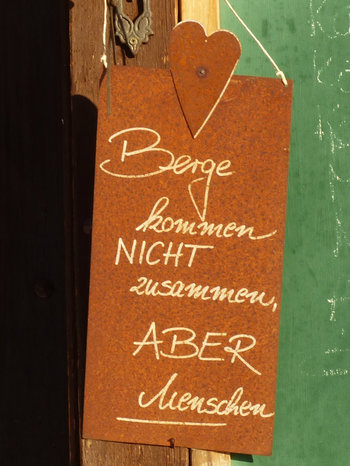 Berge
kommen
NICHT
zusammen,
ABER
Menschen